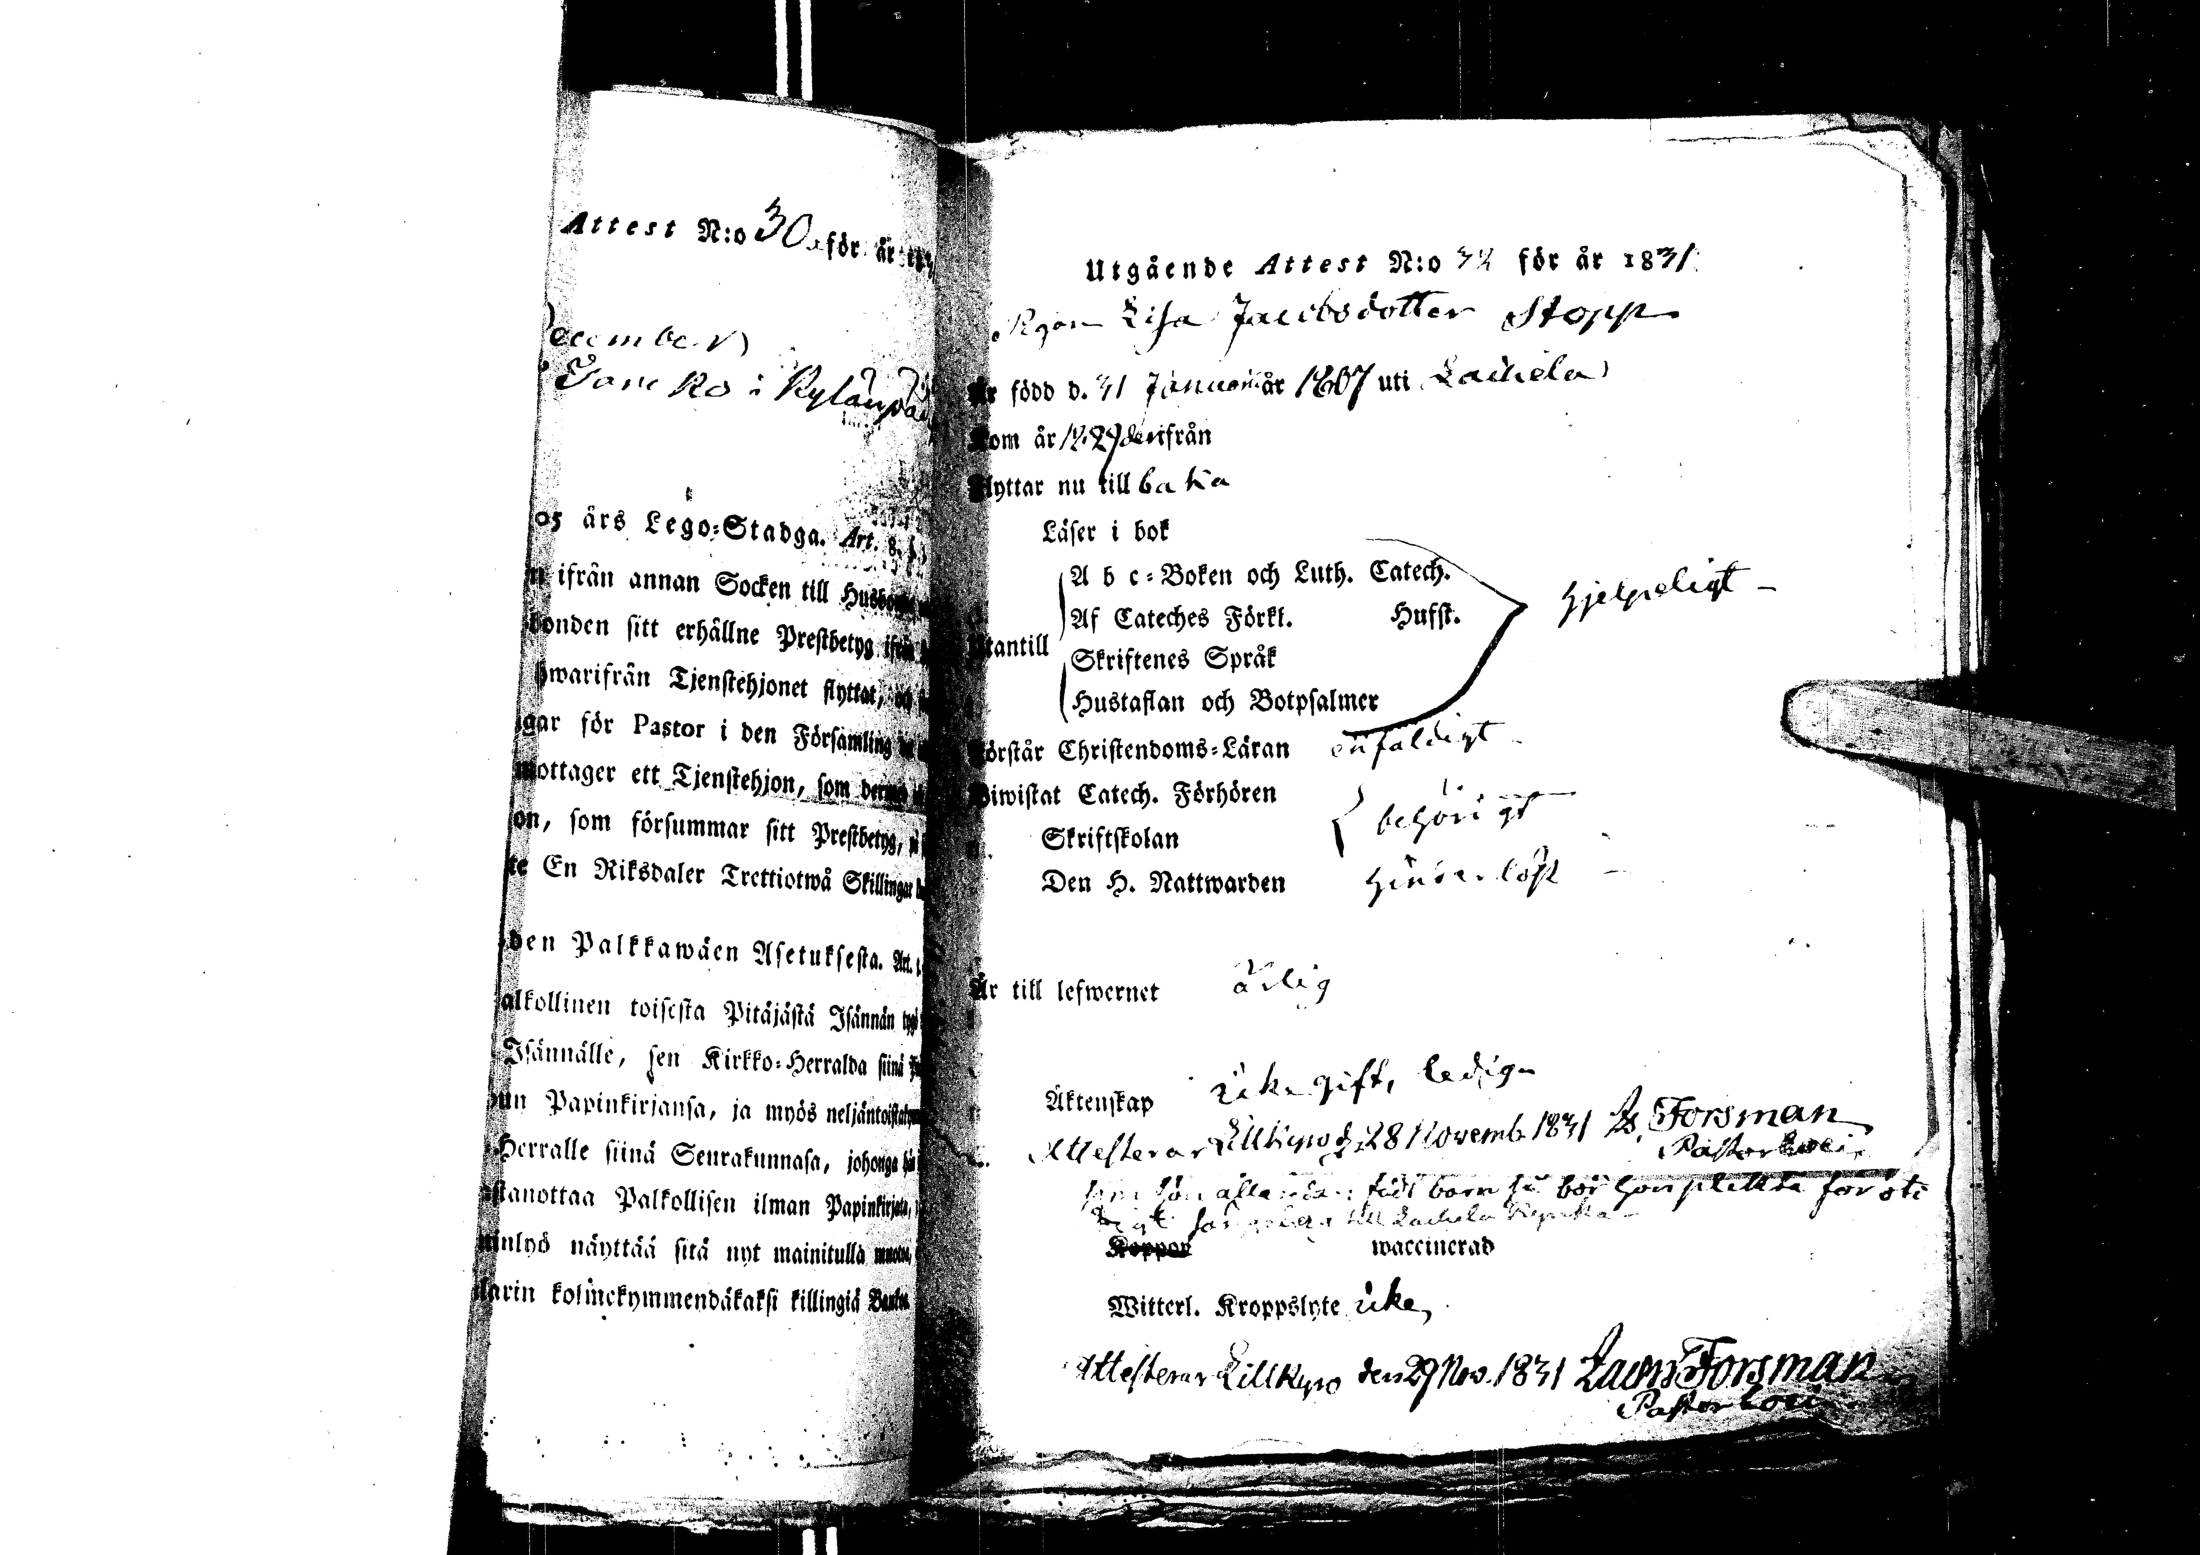 Attest N:o 30 för år
ecember
Jancko i Kylänpää
05 års Lego-Stadga. Art. 8.
ifrån annan Socken till Husbon
bonden sitt erhållne Prestbetyg ifrån
hwarifrån Tjenstehjonet flyttat, och
gar för Pastor i den Församling
mottager ett Tjenstehjon, som
on, som försummar sitt Prestbetyg,
te En Riksdaler Trettiotwå Skillingar
den Palkkawäen Asetuksesta. Art.
alkollinen toisesta Pitäjästä Isännän
Isännälle, sen Kirkko-Herralda siinä
un Papinkirjansa, ja myös neljäntoista
Herralle siinä Seurakunnasa, johonga hän
stanottaa Palkollisen ilman Papinkirjata,
näyttää sitä nyt mainitulla
larin kolmekymmendäkaksi killingiä Banko
Utgående Attest N:o 32 för år 1831
Pigan Lisa Jacobsdotter Stopp
Är född d. 31 Januarii år 1807 uti Laihela
Kom år 1829 derifrån
Flyttar nu tillbaka
Läser i bok
A b c-Boken och Luth. Catech.
Af Cateches Förkl. Hufst. hjelpeligt
Utantill
Skriftenes Språk
Hustaflan och Botpsalmer
Förstår Christendoms-Läran enfaldigt
Biwistat Catech. Förhören
Skriftskolan behörigt
Den H. Nattwarden hinderlöst
Är till lefwernet ärlig
Äktenskap icke gift, ledig
Attesterar Lillkyro d. 28 Novemb. 1831 Zs. Forsman
Pastor Loci
född barn så bör hon
till Laihela
Koppor waccinerad
Witterl. Kroppslyte icke,
Attesterar Lillkyro den 29 Nov. 1831 Zachrs Forsman
Pastor Loci